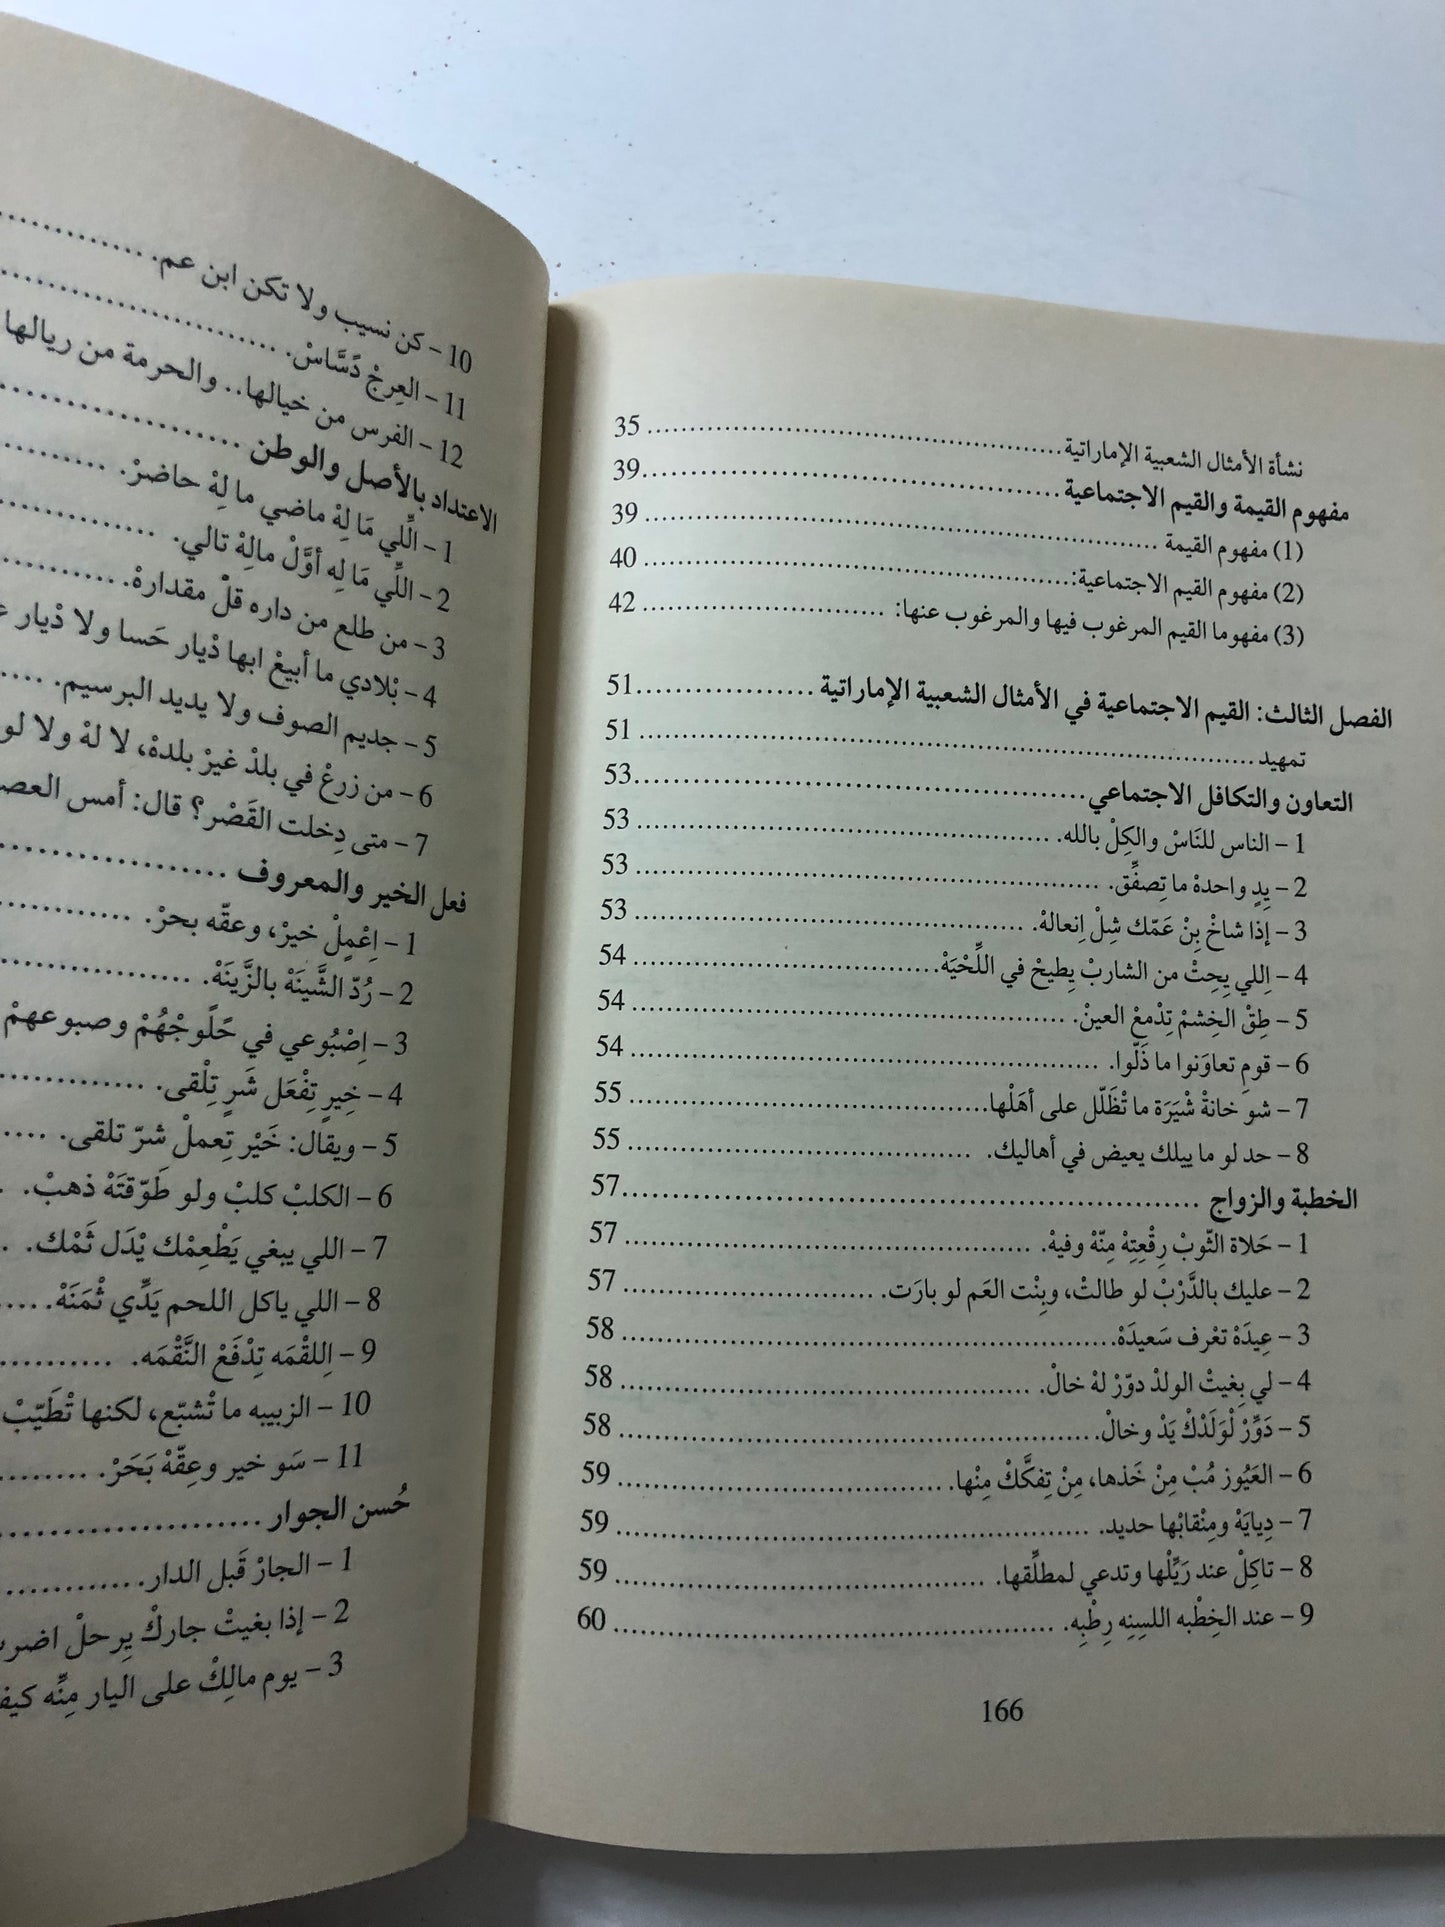 نشأة الأمثال الشعبية الإماراتية.......................................... 35
مفهوم القيمة والقيم الاجتماعية.......................................... 39
(1) مفهوم القيمة .......................................... 39
(2) مفهوم القيم الاجتماعية:.......................................... 40
(3) مفهوما القيم المرغوب فيها والمرغوب عنها: .......................... 42
الفصل الثالث: القيم الاجتماعية في الأمثال الشعبية الإماراتية .................. 51
تمهيد .......................................... 51
التعاون والتكافل الاجتماعي.......................................... 53
1 – الناس للنَاسْ والكِلْ بالله. .......................................... 53
2 – يِدٍ واحدهْ ما تِصفِّق. .......................................... 53
3 – إذا شاخْ بِنْ عَمّك شِلْ اِنعالهْ. .......................................... 53
4 – اِللي يِحِتْ من الشاربْ يِطيحْ في اللِّحْيَهْ. .............................. 54
5 – طِقْ الخِشمْ تِدْمعْ العينْ. .......................................... 54
6 – قومٍ تعاوَنوا ما ذَلّوا. .......................................... 54
7 – شو خانةْ شْيَرَة ما تْظَلّل على أهَلْها.................................... 55
8 – حد لو ما ييلك يعيض في أهاليك. .................................... 55
الخطبة والزواج .......................................... 57
1 – حَلاة الثّوبْ رِقْعِتِهْ مِنّهْ وفيهْ. .......................................... 57
2 – عليك بالدَّرْبْ لو طالتْ، وبِنْت العَم لو بارَت. ........................ 57
3 – عِيدَهْ تعْرف سَعيدَهْ.......................................... 58
4 – لي بِغيتْ الولدْ دوّرْ لهْ خالْ. .......................................... 58
5 – دَوِّرْ لْوَلَدْكْ يَدْ وخالْ.......................................... 58
6 – العَيُوز مُبْ مِنْ خَذها، مِنْ تِفكَّكْ مِنْها. .............................. 59
7 – دِيايَهْ ومِنْقابْها حديد. .......................................... 59
8 – تاكِلْ عند رَيِّلْها وتدعي لمطلِّقها. .................................... 59
9 – عند الخِطْبه اللسِنِه رِطْبِه. .......................................... 60
166
10 – كن نسيب ولا تكن ابن عم. ....................
11 – العِرجْ دَسَّاسْ. ..............................
12 – الفرس من خيالها.. والحرمة من ريالها
الاعتداد بالأصل والوطن ....................
1 – الِّلي مَا لِهْ ماضي ما لِهْ حاضرْ. ..........
2 – اللِّي مَا لِه أوَّلْ مالِهْ تالي. ..............
3 – من طلع من داره قلْ مقدارهْ. ..............
4 – بْلادي ما أبيعْ ابها دْيار حَسا ولا دْيار
5 – جديم الصوف ولا يديد البرسيم. ......
6 – من زرعْ في بلدْ غيرْ بلدهْ، لا لهْ ولا
7 – متى دِخلت القَصْر؟ قال: أمس
فعل الخير والمعروف ....................
1 – اِعْمِلْ خيرْ، وعقّه بحرْ. ..............
2 – رُدّ الشَّينَهْ بالزَّينَهْ. ....................
3 – اِصْبُوعي في حَلَوجْهُمْ وصبوعهمْ
4 – خِيرٍ تِفْعَل شَرٍ تِلْقى. ....................
5 – ويقال: خَيْر تِعملْ شرّ تلقى. ......
6 – الكلبْ كلبْ ولو طَوّقتَهْ ذهبْ. .
7 – اللي يبغي يَطْعِمْك يْدَل ثَمْك. ..
8 – اللي ياكل اللحم يَدِّي ثْمَنَهْ. ......
9 – اِللقْمَه تِدْفَعْ النَّقْمَه. ..............
10 – الزبيبه ما تْشبّع، لكنها تْطَيّبْ
11 – سَو خير وعِقّهْ بَحَرْ. ..........
حُسن الجوار ....................
1 – الجارْ قَبل الدار. ..............
2 – إذا بغيتْ جاركْ يِرحلْ
3 – يوم مالِكْ على اليار مِنِّه